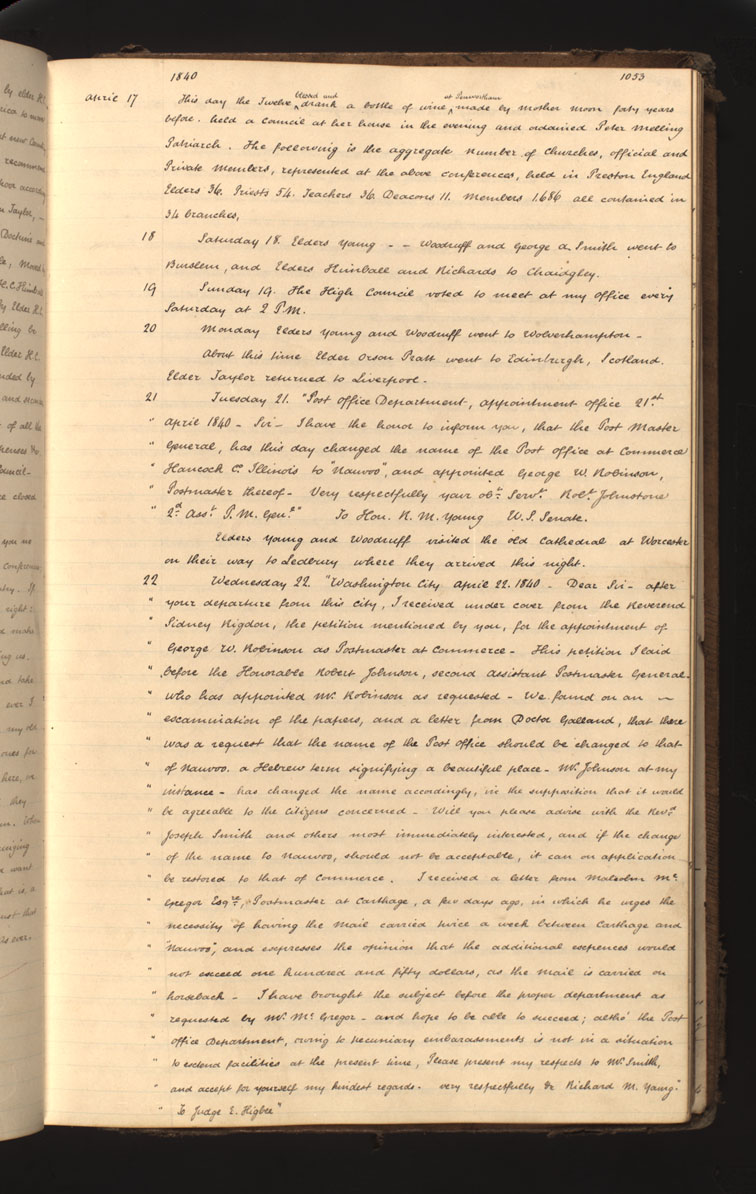 by elder H.
1840 1053
April 17 This day the Twelve blessed and drank a bottle of wine at Penwortham made by mother Moon forty years
before. held a council at her house in the evening and ordained Peter Melling
Patriarch. The following is the aggregate number of Churches, official and
Private members, represented at the above conferences, held in Preston England
Elders 36. Priests 54. Teachers 36. Deacons 11. Members 1.686 all contained in
34 branches,
18 Saturday 18. Elders Young - - Woodruff and George A. Smith went to
Burslem, and Elders Kimball and Richards to Chaidgley.
19 Sunday 19. The High Council voted to meet at my office every
Saturday at 2 P.M.
20 Monday Elders Young and Woodruff went to Wolverhampton -
About this time Elder Orson Pratt went to Edinburgh, Scotland.
Elder Taylor returned to Liverpool -
21 Tuesday 21. "Post office Department, appointment office 21st
" April 1840 - Sir - I have the honor to inform you, that the Post Master
" General, has this day changed the name of the Post office at Commerce
" Hancock Co Illinois to "Nauvoo", and appointed George W. Robinson,
" Postmaster thereof - Very respectfully your obt. Servt. Robt Johnstone
" 2d Asst P.M. Genl" To Hon. R. M. Young U.S. Senate.
Elders Young and Woodruff visited the old Cathedral at Worcester
on their way to Ledbury where they arrived this night.
22 Wednesday 22. "Washington City April 22. 1840 - Dear Sir - after
" your departure from this city, I received under cover from the Reverend
" Sidney Rigdon, the petition mentioned by you, for the appointment of
" George W. Robinson as Postmaster at Commerce - This petition I laid
" before the Honorable Robert Johnson, second assistant Postmaster General -
" who has appointed Mr. Robinson as requested - We found on an ~
" examination of the papers, and a letter from Doctor Galland, that there
" was a request that the name of the Post office should be changed to that
" of Nauvoo. a Hebrew term signifying a beautiful place - Mr. Johnson at my
" instance - has changed the name accordingly, in the supposition that it would
" be agreeable to the Citizens concerned - Will you please advise with the Revd.
" Joseph Smith and others most immediately interested, and if the change
" of the name to Nauvoo, should not be acceptable, it can on application
" be restored to that of Commerce. I received a letter from Malcolm Mc
" Gregor Esqre., Postmaster at Carthage, a few days ago, in which he urges the
" necessity of having the Mail carried twice a week between Carthage and
" "Nauvoo", and expresses the opinion that the additional expences would
" not exceed one hundred and fifty dollars, as the mail is carried on
" horseback - I have brought the subject before the proper department as
" requested by Mr. Mc Gregor - and hope to be able to succeed; altho' the Post
" office Department, owing to pecuniary embarassments is not in a situation
" to extend facilities at the present time, Please present my respects to Mr. Smith,
" and accept for yourself my kindest regards. very respectfully &c Richard M. Young."
" To Judge E. Higbee"